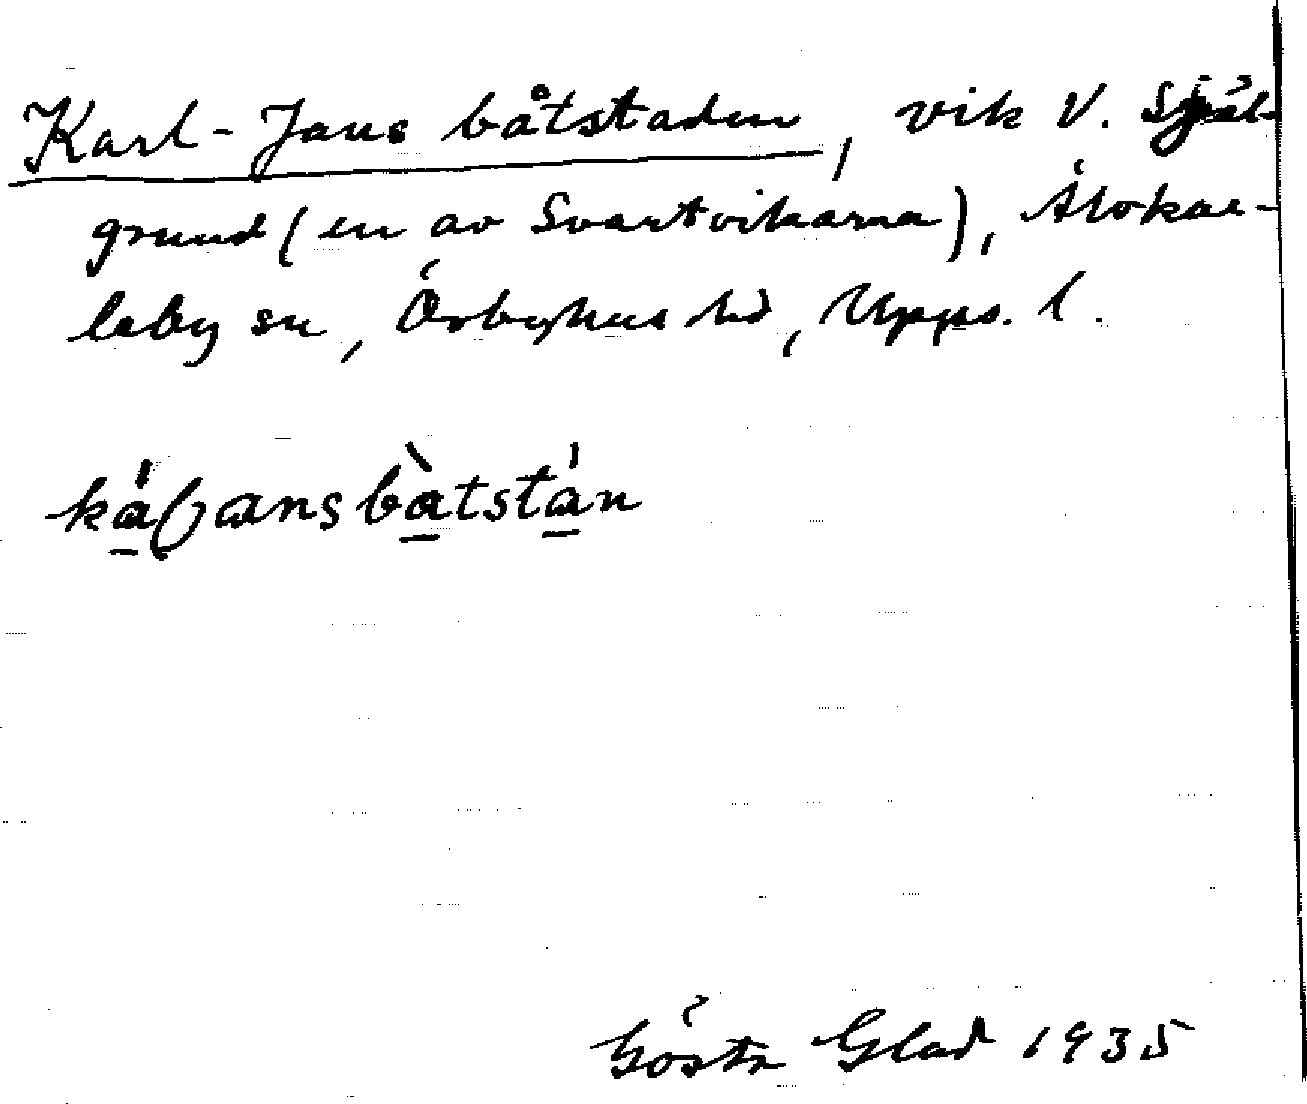 Karl-Jans båtstaden, vik V. Själ-
grund (en av Svartvikarna), Älvkar-
leby sn, Örbyhus hd, Upps. l.
Gösta Glad 1935